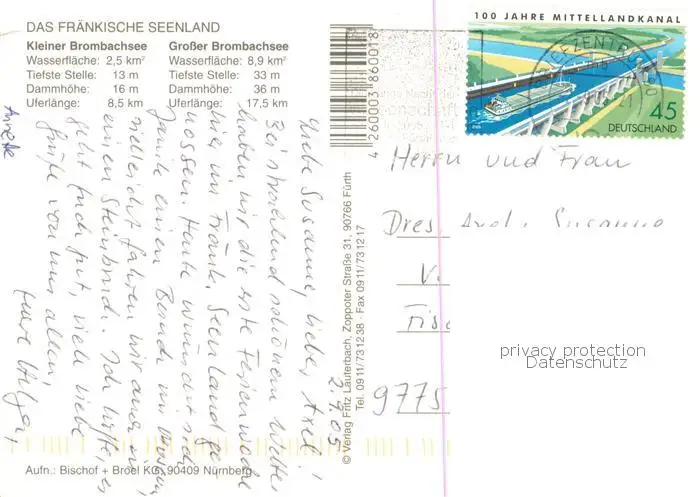 DAS FRÄNKISCHE SEENLAND
Kleiner Brombachsee
Wasserfläche: 2,5 km²
Tiefste Stelle: 13 m
Dammhöhe: 16 m
Uferlänge: 8,5 km
Großer Brombachsee
Wasserfläche: 8,9 km²
Tiefste Stelle: 33 m
Dammhöhe: 36 m
Uferlänge: 17,5 km
4 260003 186001
100 JAHRE MITTELLANDKANAL
45
DEUTSCHLAND
2.9.05
Liebe Susanne, lieber Axel!
Bei strahlend schönem Wetter
haben wir die erste Ferienwoche
hier im Fränk. Seenland ge-
nossen. Heute
einen
vielleicht fahren wir auch in
einen Steinbruch. Ich hoffe, es
geht Euch gut, viele liebe
Grüße von uns allen,
Eure Helga,
Annette
© Verlag Fritz Lauterbach, Zoppoter Straße 31, 90766 Fürth
Tel. 0911/731238 · Fax 0911/731217
Herrn und Frau
Dres. Axel u. Susanne
V.
Fis
9775
privacy protection
Datenschutz
Aufn.: Bischof + Broel KG, 90409 Nürnberg